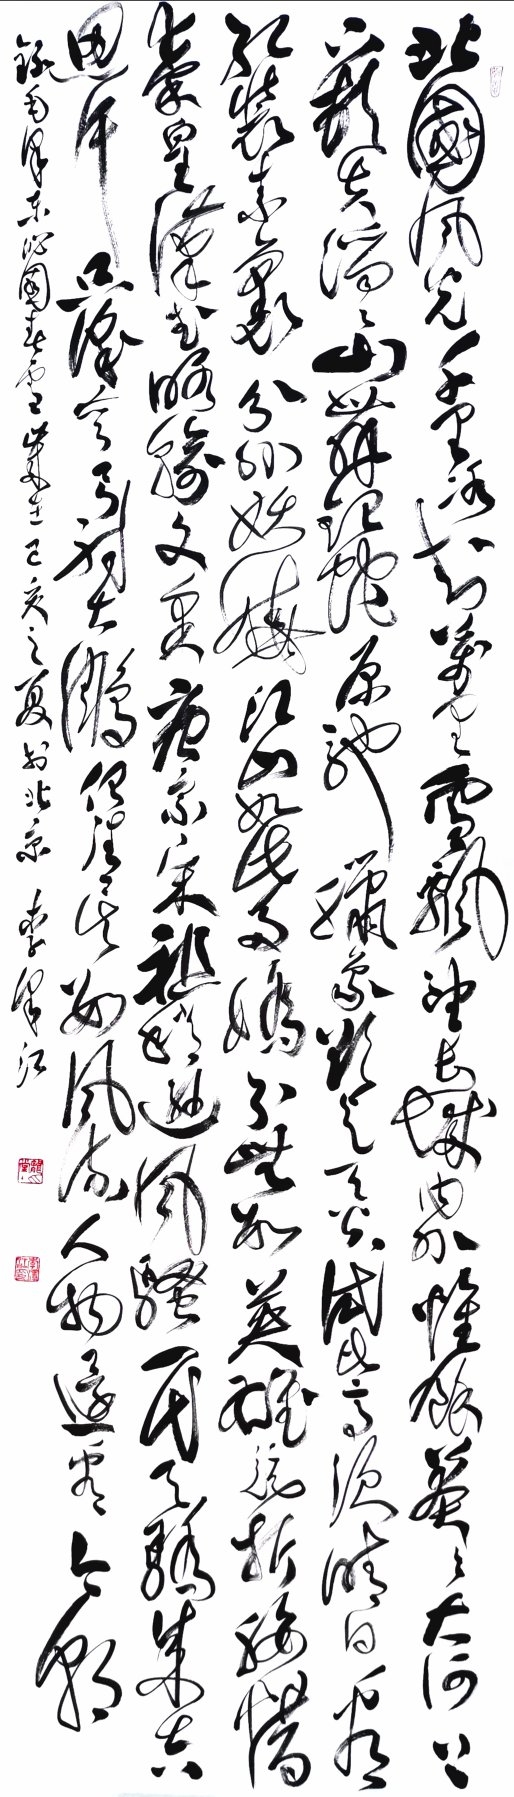 北國風光千里冰封萬里雪飄望長城內外惟餘莽莽大河上
下頓失滔滔山舞銀蛇原馳蠟象欲與天公試比高須晴日看
紅裝素裹分外妖嬈江山如此多嬌引無數英雄競折腰惜
秦皇漢武略輸文采唐宗宋祖稍遜風騷一代天驕成吉
思汗只識彎弓射大鵰俱往矣數風流人物還看今朝
錄毛澤東沁園春雪歲在己亥之夏於北京 李澤江